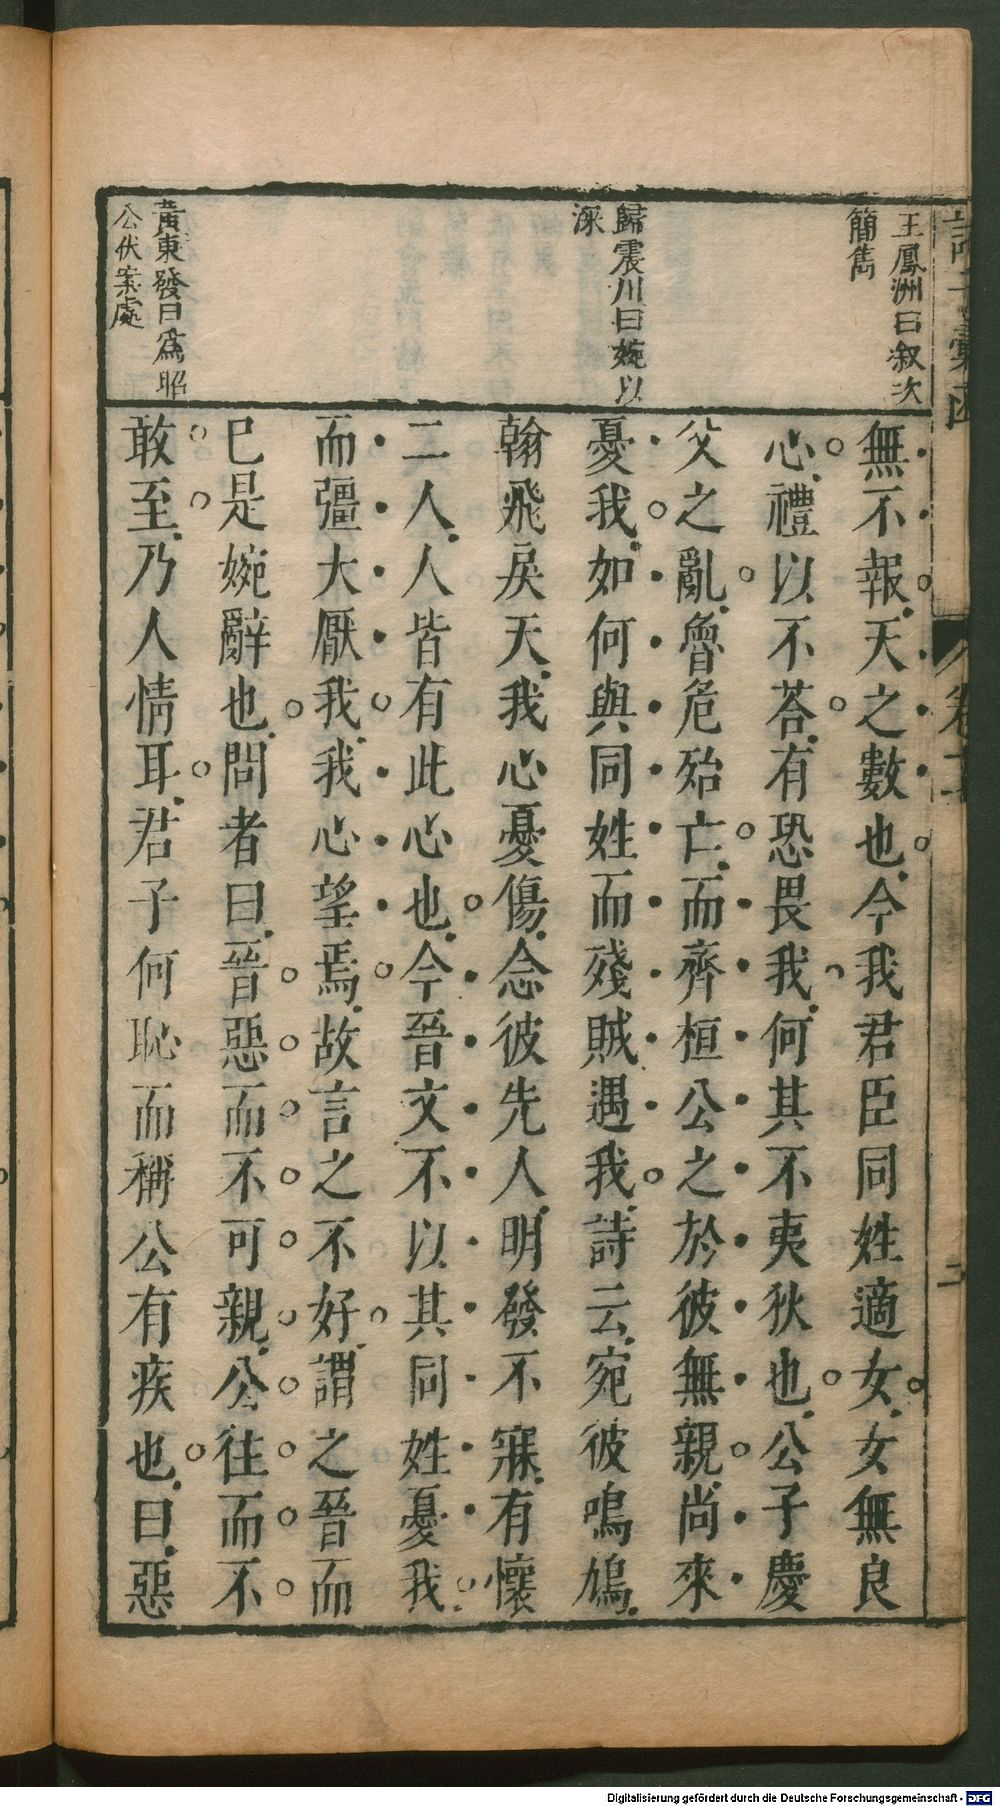 王鳳洲曰叙次
簡雋
歸震川曰婉以
深
黃東發曰爲昭
公伏案處
無不報天之數也今我君臣同姓適女女無良
心禮以不荅有恐畏我何其不夷狄也公子慶
父之亂魯危殆亡而齊桓公之於彼無親尚來
憂我如何與同姓而殘賊遇我詩云宛彼鳴鳩
翰飛戾天我心憂傷念彼先人明發不寐有懷
二人人皆有此心也今晉文不以其同姓憂我
而彊大厭我我心望焉故言之不好謂之晉而
已是婉辭也問者曰晉惡而不可親公往而不
敢至乃人情耳君子何恥而稱公有疾也曰惡
卷十
二
Digitalisierung gefördert durch die Deutsche Forschungsgemeinschaft - DFG